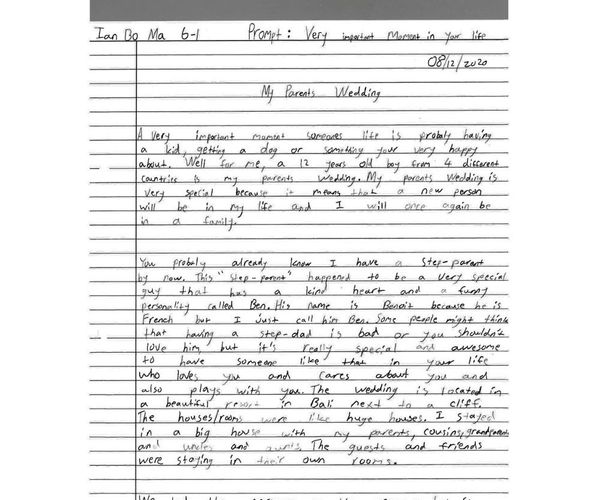 Ian Bo Ma 6-1 Prompt: Very important Moment in Your life
08/12/2020
My Parents Wedding
A very important moment someones life is probaly having
a kid, getting a dog or somthing your very happy
about. Well for me, a 12 years old boy from 4 different
countries is my parents wedding. My parents Wedding is
very special because it means that a new person
will be in my life and I will once again be
in a family.
You probaly already know I have a step-parent
by now. This "step-parent" happened to be a very special
guy that has a kind heart and a funny
personality called Ben. His name is Benoit because he is
French but I just call him Ben. Some people might think
that having a step-dad is bad or you shouldn't
love him, but it's really special and awesome
to have someone like that in your life
who loves you and cares about you and
also plays with you. The wedding is located in
a beautiful resort in Bali next to a cliff.
The houses/rooms were like huge houses. I stayed
in a big house with my parents, cousins, grandparents
and uncles and aunts. The guests and friends
were staying in their own rooms.